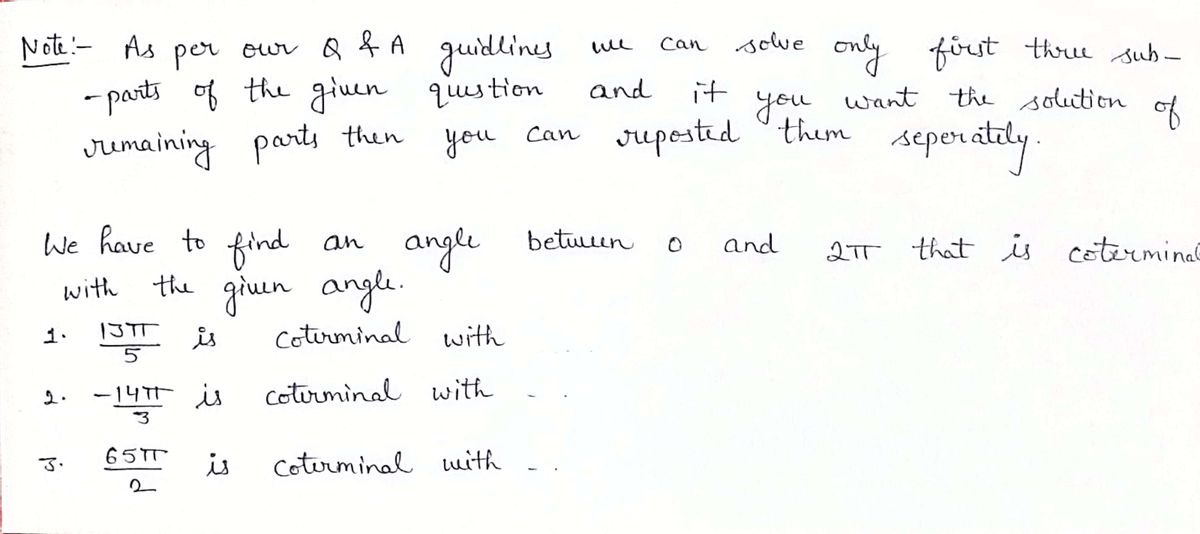 Note:- As per our Q & A guidlines we can solve only first three sub-
-parts of the given question and if you want the solution of
remaining parts then you can reposted them seperately.
We have to find an angle between 0 and 2π that is coterminal
with the given angle.
1. 13π/5 is coterminal with
2. -14π/3 is coterminal with - .
3. 65π/2 is coterminal with - .